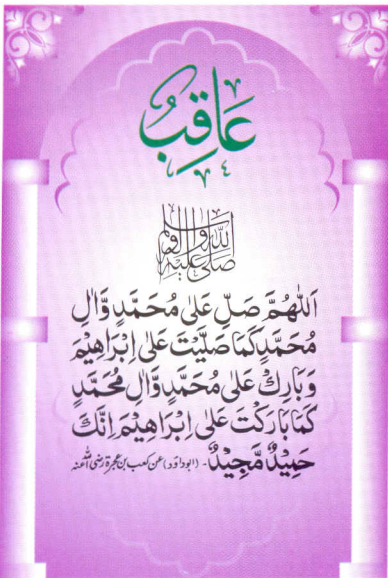 عَاقِبُ
صَلَّى اللّٰهُ عَلَيْهِ وَاٰلِهٖ وَسَلَّمَ
اَللّٰهُمَّ صَلِّ عَلٰى مُحَمَّدٍ وَّاٰلِ
مُحَمَّدٍ كَمَا صَلَّيْتَ عَلٰى اِبْرَاهِيْمَ
وَبَارِكْ عَلٰى مُحَمَّدٍ وَّاٰلِ مُحَمَّدٍ
كَمَا بَارَكْتَ عَلٰى اِبْرَاهِيْمَ اِنَّكَ
حَمِيْدٌ مَّجِيْدٌ۔ (ابوداؤد) عن کعب بن عجرة رضی اللّٰه عنه